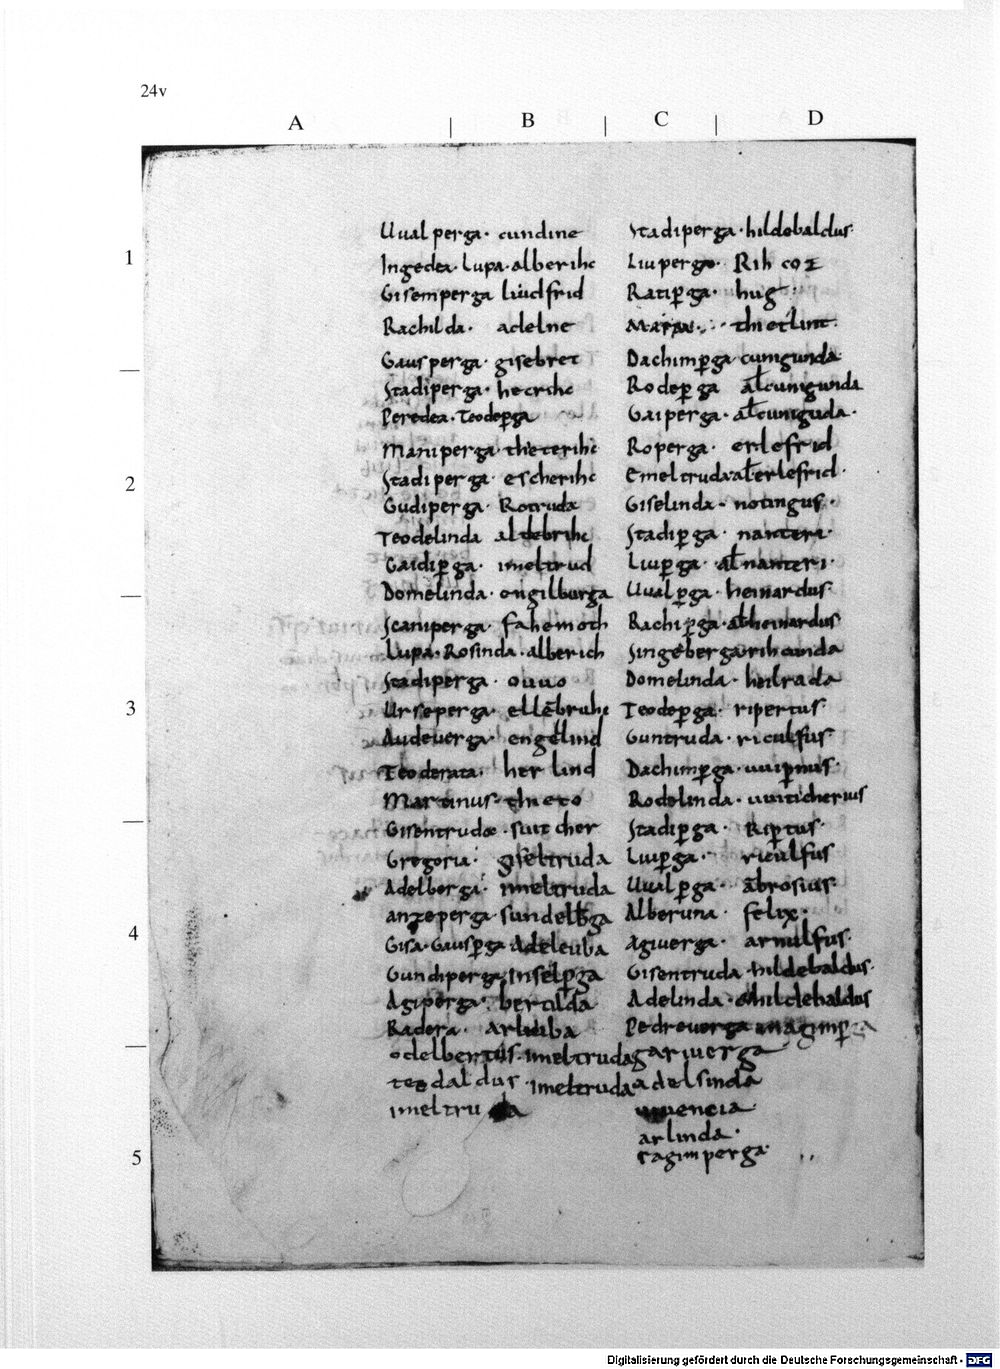 24v
A | B | C | D
1
2
3
4
5
Uualperga · cundine
Ingedea · Lupa · alberihc
Gisemperga liudfrid
Rachilda · adelne
Gausperga · gisebret
Stadiperga · hecrihc
Peredea · Teodeꝑga
Maniperga · theterihc
Stadiperga · escherihc
Gudiperga · Rotruda
Teodelinda aldebrihc
Gaidiꝑga · imeltrud
Domelinda · engilburga
Scaniperga · fahemoth
Lupa · Rosinda · alberich
Stadiperga · ouuo
Urseperga · ellēbruhc
Audeuerga · engelind
Teoderata · herlind
Martinus · thieto
Gisentrudæ · suitcher
Gregoria · giseltruda
Adelberga · imeltruda
anzeperga · sundelb̄ga
Gisa · Gausꝑga · Adeleuba
Gundiperga · Inselꝑga
Agiperga · bertilda
Radera · arleuba
odelbertus · imeltruda
teodaldus · imeltruda
imeltruda
Stadiperga · hildebaldus ·
Liuperga · Rihcoz
Ratiꝑga · hug ·
Maria · thietlint ·
Dachimꝑga · cunigunda
Rodeꝑga al̄cunigunda
Gaiperga · al̄cuniguda ·
Roperga · erlefrid
Emeltruda · al̄erlefrid ·
Giselinda · notingus ·
Stadiꝑga · nanteri ·
Liuꝑga · al̄nanteri ·
Uualꝑga · heinardus ·
Rachiꝑga · al̄heinardus
Singeberga · rihcunda
Domelinda · heilrada
Teodeꝑga · ripertus ·
Guntruda · riculfus ·
Dachimꝑga · uuiꝑnus ·
Rodelinda · uuiticherius
Stadiꝑga · Riꝑtus ·
Liuꝑga · riculfus
Uualꝑga · ābrosius ·
Alberuna · felix ·
Agiuerga · arnulfus ·
Gisentruda · hildebaldus ·
Adelinda · hildebaldus
Pedreuerga · magimꝑga
gariuerga
adelsinda
uuencia
arlinda ·
ragimperga ·
Digitalisierung gefördert durch die Deutsche Forschungsgemeinschaft - DFG